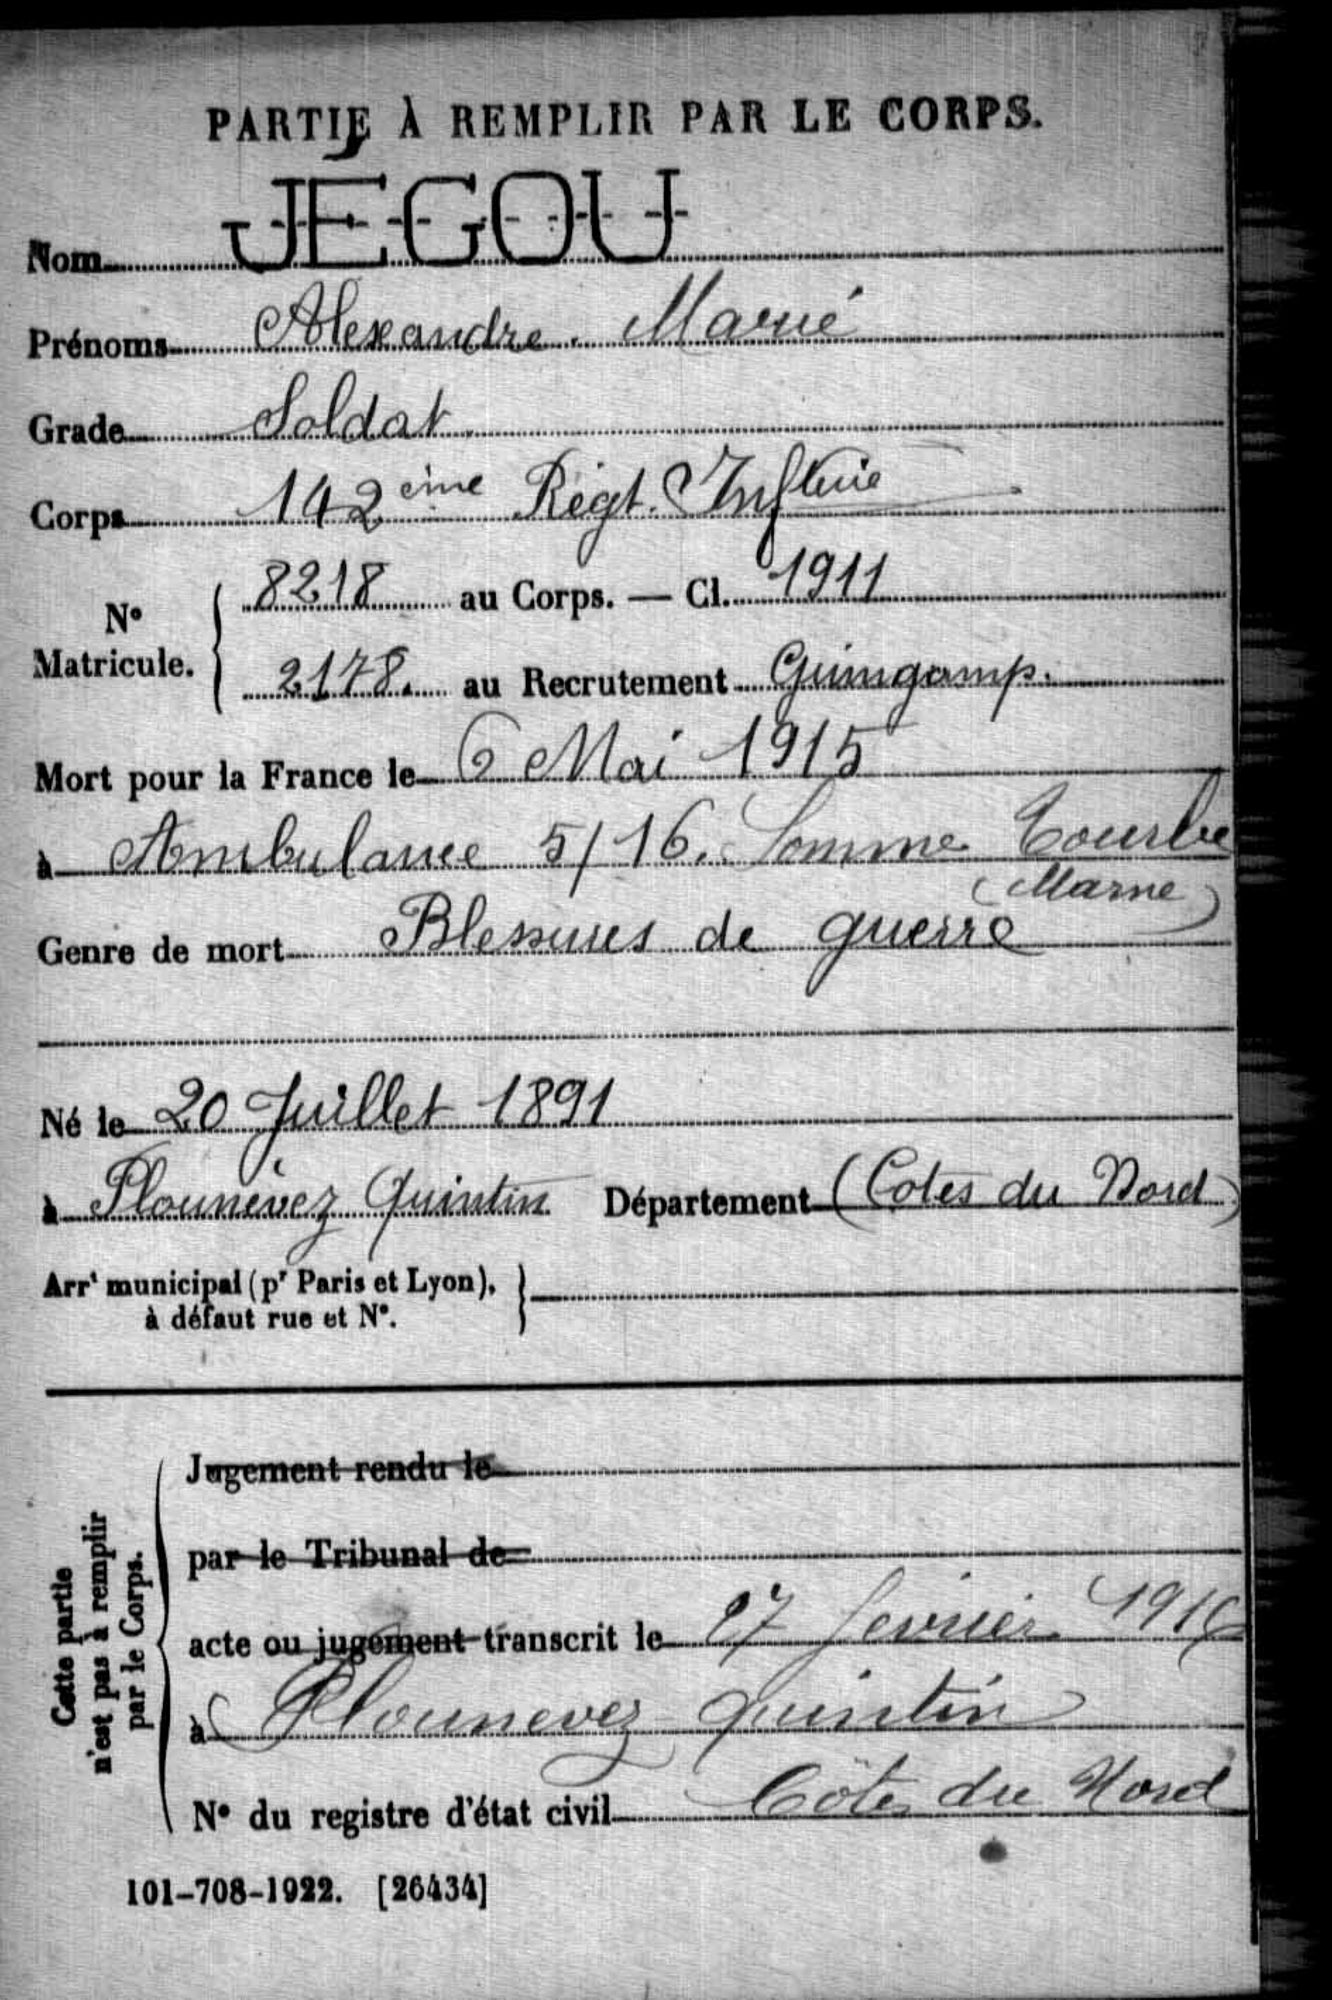 PARTIE À REMPLIR PAR LE CORPS.
Nom JÉGOU
Prénoms Alexandre. Marie
Grade Soldat
Corps 142ème Régt. Infterie
N° Matricule. 8218 au Corps. — Cl. 1911
2178. au Recrutement Guingamp.
Mort pour la France le 6 Mai 1915
à Ambulance 5/16. Somme Tourbe
(Marne)
Genre de mort Blessures de guerre
Né le 20 Juillet 1891
à Plounévez Quintin Département (Cotes du Nord)
Arrt municipal (pr Paris et Lyon),
à défaut rue et N°.
Cette partie
n'est pas à remplir
par le Corps.
Jugement rendu le
par le Tribunal de
acte ou jugement transcrit le 17 février
à Plounevez Quintin
N° du registre d'état civil Côtes du Nord
101-708-1922. [26434]